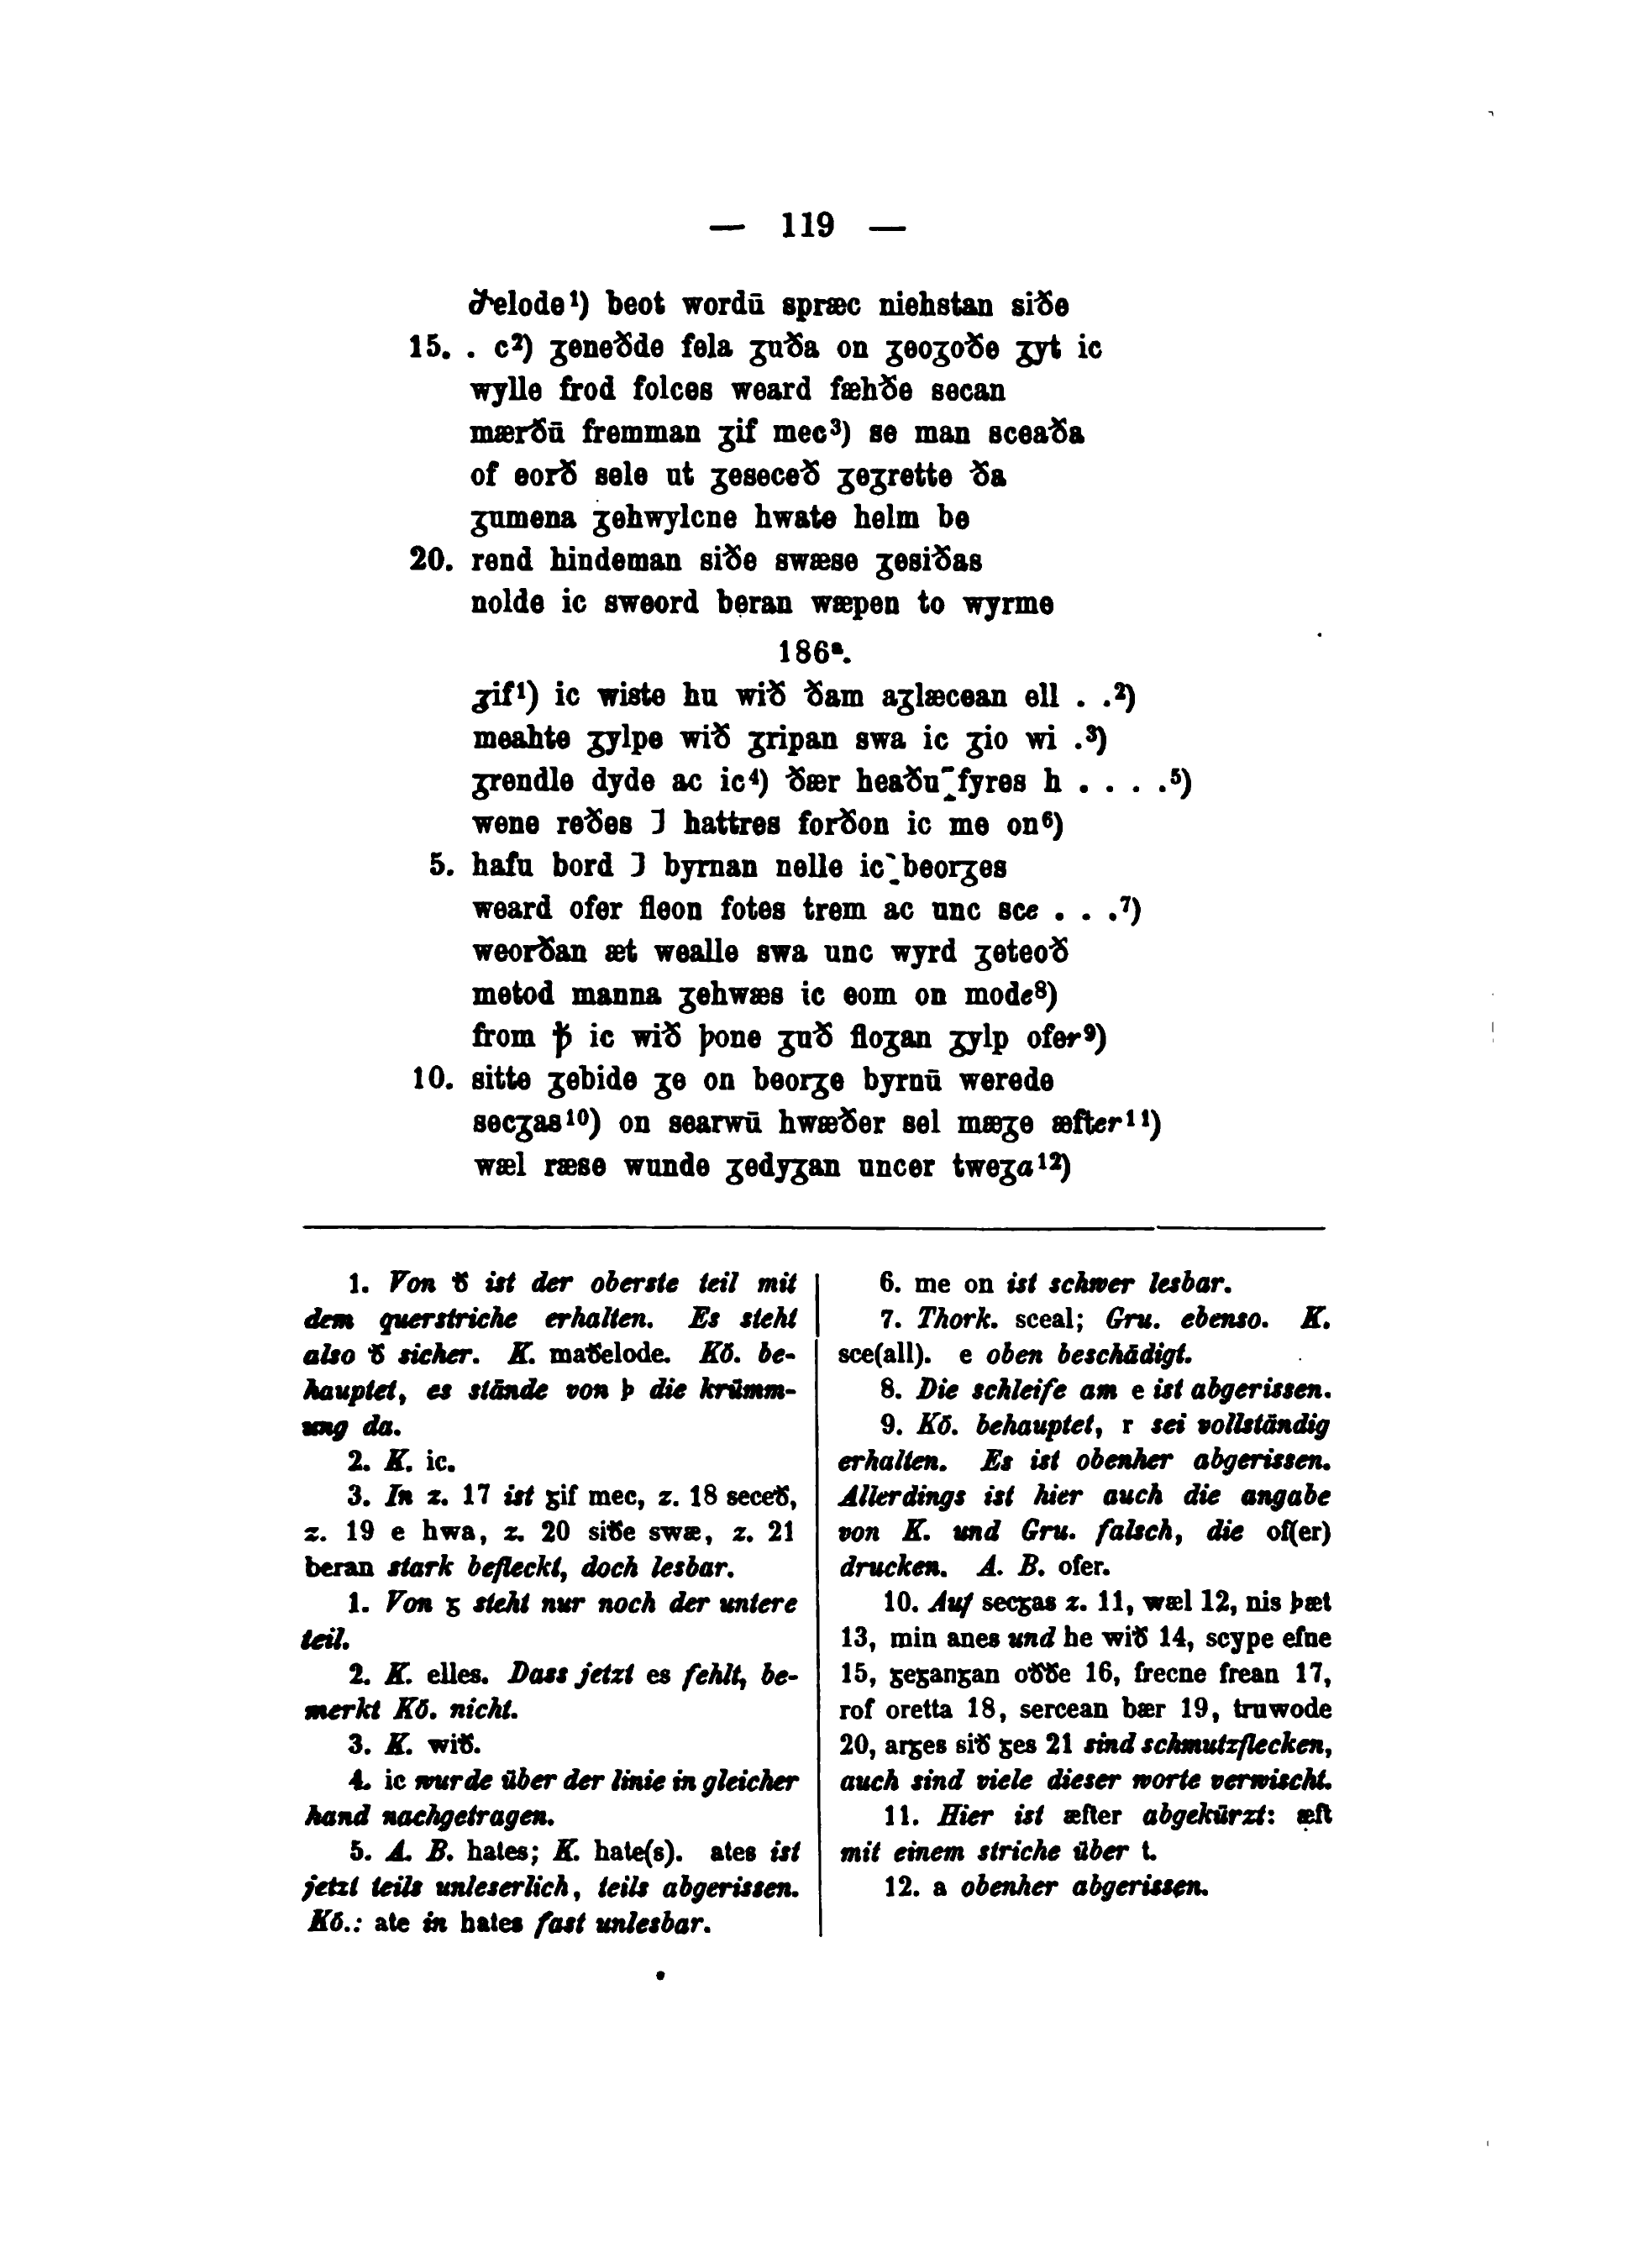 — 119 —
ðelode¹) beot wordū spræc niehstan siðe
15. . c²) ʒeneðde fela ʒuða on ʒeoʒoðe ʒyt ic
wylle frod folces weard fæhðe secan
mærðū fremman ʒif mec³) se man sceaða
of eorð sele ut ʒeseceð ʒeʒrette ða
ʒumena ʒehwylcne hwate helm be
20. rend hindeman siðe swæse ʒesiðas
nolde ic sweord beran wæpen to wyrme
186ª.
ʒif¹) ic wiste hu wið ðam aʒlæcean ell . .²)
meahte ʒylpe wið ʒripan swa ic ʒio wi .³)
ʒrendle dyde ac ic⁴) ðær heaðu fyres h . . . .⁵)
wene reðes ⁊ hattres forðon ic me on⁶)
5. hafu bord ⁊ byrnan nelle ic beorʒes
weard ofer fleon fotes trem ac unc sce . . .⁷)
weorðan æt wealle swa unc wyrd ʒeteoð
metod manna ʒehwæs ic eom on mode⁸)
from ꝥ ic wið þone ʒuð floʒan ʒylp ofer⁹)
10. sitte ʒebide ʒe on beorʒe byrnū werede
secʒas¹⁰) on searwū hwæðer sel mæʒe æfter¹¹)
wæl ræse wunde ʒedyʒan uncer tweʒa¹²)
1. Von ð ist der oberste teil mit
dem querstriche erhalten. Es steht
also ð sicher. K. maðelode. Kö. be-
hauptet, es stände von þ die krümm-
ung da.
2. K. ic.
3. In z. 17 ist ʒif mec, z. 18 seceð,
z. 19 e hwa, z. 20 siðe swæ, z. 21
beran stark befleckt, doch lesbar.
1. Von ʒ steht nur noch der untere
teil.
2. K. elles. Dass jetzt es fehlt, be-
merkt Kö. nicht.
3. K. wið.
4. ic wurde über der linie in gleicher
hand nachgetragen.
5. A. B. hates; K. hate(s). ates ist
jetzt teils unleserlich, teils abgerissen.
Kö.: ate in hates fast unlesbar.
6. me on ist schwer lesbar.
7. Thork. sceal; Gru. ebenso. K.
sce(all). e oben beschädigt.
8. Die schleife am e ist abgerissen.
9. Kö. behauptet, r sei vollständig
erhalten. Es ist obenher abgerissen.
Allerdings ist hier auch die angabe
von K. und Gru. falsch, die of(er)
drucken. A. B. ofer.
10. Auf secʒas z. 11, wæl 12, nis þæt
13, min anes und he wið 14, scype efne
15, ʒeʒanʒan oððe 16, frecne frean 17,
rof oretta 18, sercean bær 19, truwode
20, arʒes sið ʒes 21 sind schmutzflecken,
auch sind viele dieser worte verwischt.
11. Hier ist æfter abgekürzt: æft
mit einem striche über t.
12. a obenher abgerissen.